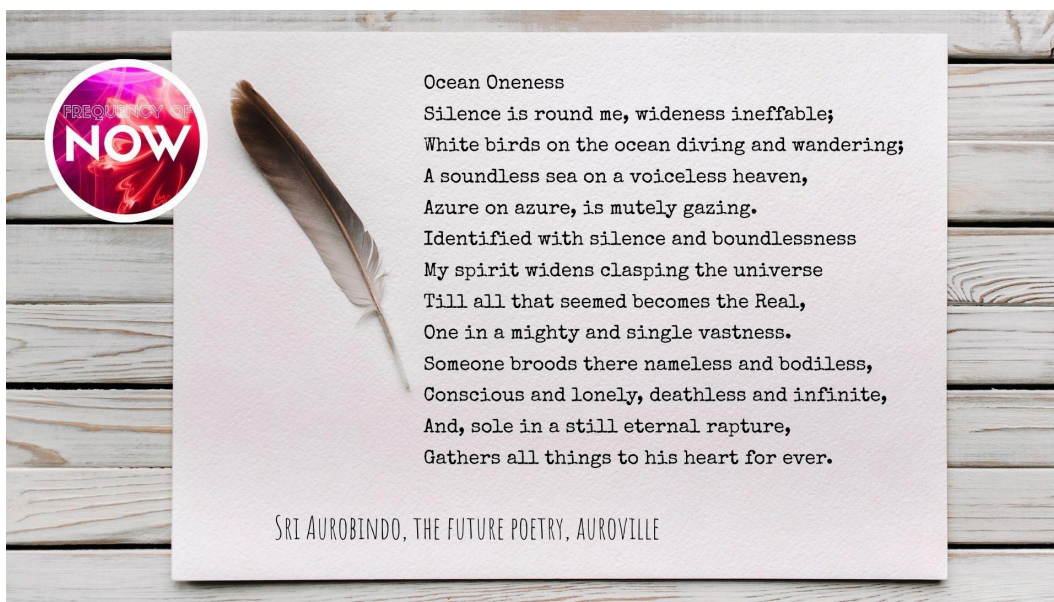 FREQUENCY OF
NOW
Ocean Oneness
Silence is round me, wideness ineffable;
White birds on the ocean diving and wandering;
A soundless sea on a voiceless heaven,
Azure on azure, is mutely gazing.
Identified with silence and boundlessness
My spirit widens clasping the universe
Till all that seemed becomes the Real,
One in a mighty and single vastness.
Someone broods there nameless and bodiless,
Conscious and lonely, deathless and infinite,
And, sole in a still eternal rapture,
Gathers all things to his heart for ever.
SRI AUROBINDO, THE FUTURE POETRY, AUROVILLE